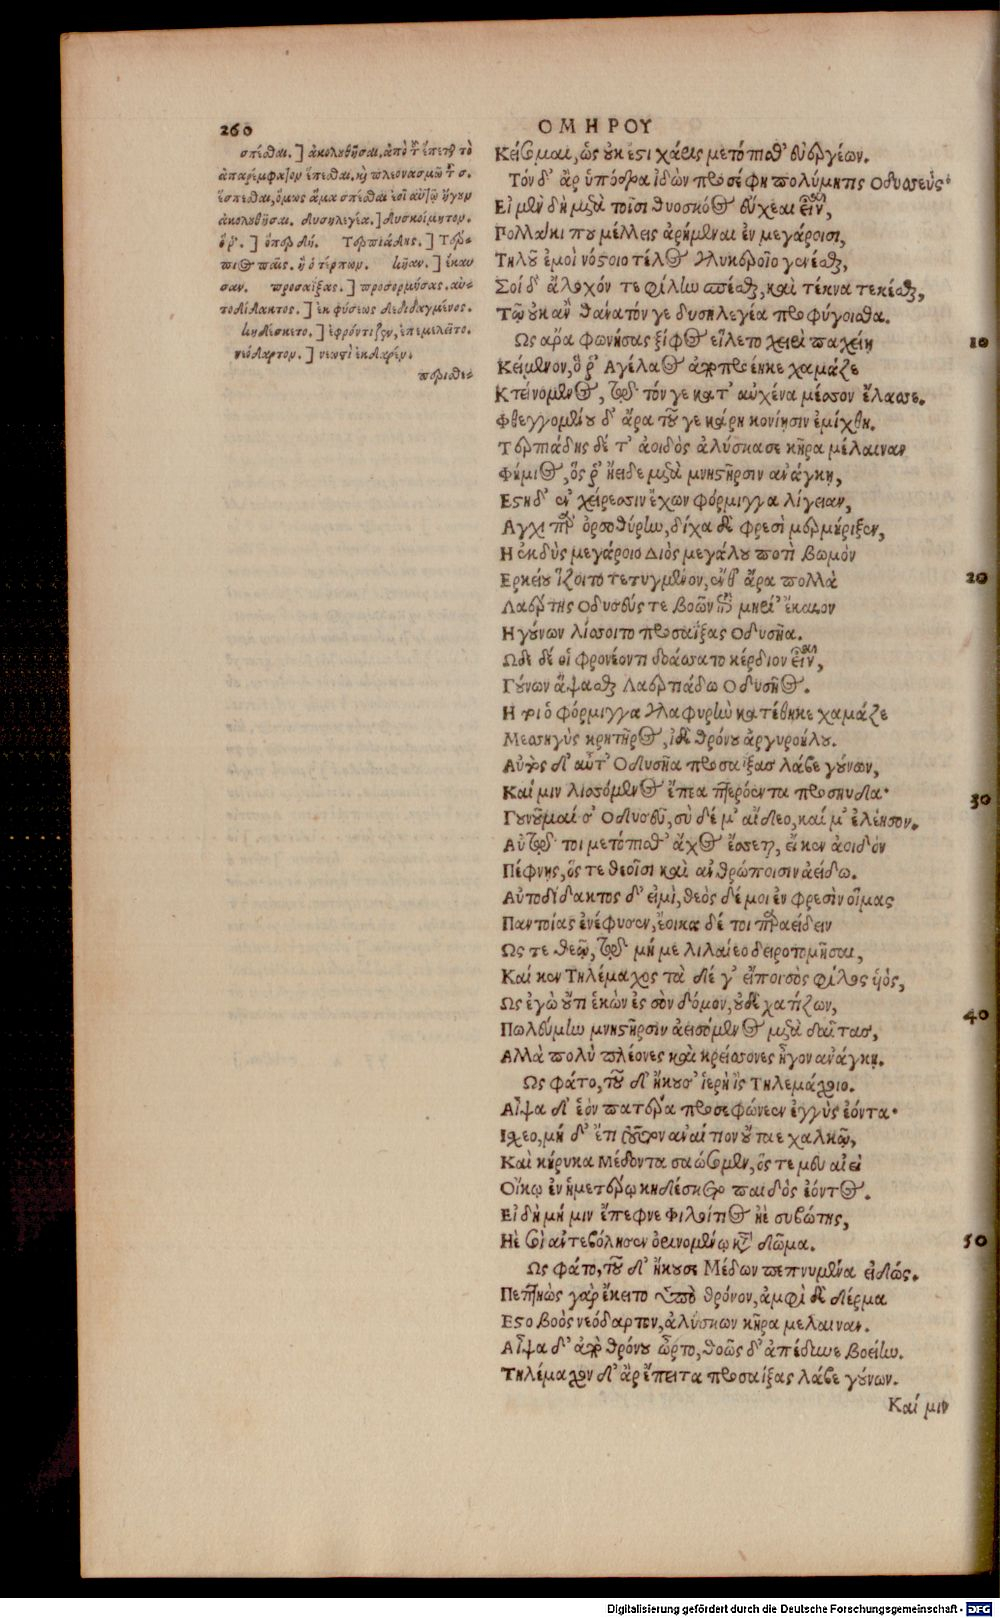 260
ΟΜΗΡΟΥ
σπέσθαι.] ἀκολουθῆσαι. ἀπὸ τοῦ ἕπεσθαι τὸ
ἀπαρέμφατον ἕπεσθαι. καὶ πλεονασμῷ τοῦ σ.
ἕσπεσθαι, ὅμως ἅμα σπέσθαι ἐςὶ αὐτῷ ἤγουν
ἀκολουθῆσαι. δυσηλεγέα.] δυσκοίμητον.
ὅ ῥ'.] ὅπερ δή. Τερπιάδης.] Τέρ-
πιος παῖς. ἢ ὁ τέρπων. κῆαν.] ἔκαυ
σαν. προσαΐξας.] προσορμήσας. αὐ-
τοδίδακτος.] ἐκ φύσεως δεδιδαγμένος.
κηδέσκετο.] ἐφρόντιζεν, ἐπεμελεῖτο.
νεόδαρτον.] νεωςὶ ἐκδαρέν.
περιθε-
Κείσομαι, ὡς οὐκ ἔςι χάρις μετόπισθ' εὐεργέων.
Τὸν δ' ἂρ ὑπόδρα ἰδὼν προσέφη πολύμητις Οδυσσεύς·
Εἰ μὲν δὴ μετὰ τοῖσι θυοσκόος εὔχεαι εἶναι,
Πολλάκι που μέλλεις ἀρήμεναι ἐν μεγάροισι,
Τηλοῦ ἐμοὶ νόςοιο τέλος γλυκεροῖο γενέσθαι,
Σοὶ δ' ἄλοχόν τε φίλην σπέσθαι, καὶ τέκνα τεκέσθαι,
Τῷ οὐκ ἂν θάνατόν γε δυσηλεγέα προφύγοισθα.
Ως ἄρα φωνήσας ξίφος εἵλετο χειρὶ παχείῃ
10
Κείμενον, ὅ ῥ' Αγέλαος ἀποπροέηκε χαμάζε
Κτεινόμενος, τῷ τόν γε κατ' αὐχένα μέσσον ἔλασσε.
Φθεγγομένου δ' ἄρα τοῦγε κάρη κονίῃσιν ἐμίχθη.
Τερπιάδης δέ τ' ἀοιδὸς ἀλύσκασε κῆρα μέλαιναν
Φήμιος, ὅς ῥ' ἤειδε μετὰ μνηςῆρσιν ἀνάγκῃ,
Εςη δ' ἐν χείρεσσιν ἔχων φόρμιγγα λίγειαν,
Αγχι παρ' ὀρσοθύρην, δίχα δὲ φρεσὶ μερμήριζεν,
Η ἐκδὺς μεγάροιο Διὸς μεγάλου ποτὶ βωμὸν
Ερκείου ἵζοιτο τετυγμένον, ἔνθ' ἄρα πολλὰ
20
Λαέρτης Οδυσεύς τε βοῶν ἐπὶ μηρί' ἔκαιον
Η γούνων λίσσοιτο προσαΐξας Οδυσῆα.
Ωδε δέ οἱ φρονέοντι δοάσσατο κέρδιον εἶναι,
Γούνων ἅψασθαι Λαερτιάδεω Οδυσῆος.
Η τοι ὁ φόρμιγγα γλαφυρὴν κατέθηκε χαμάζε
Μεσσηγὺς κρητῆρος, ἰδὲ θρόνου ἀργυροήλου.
Αὐτὸς δ' αὖτ' Οδυσῆα προσαΐξας λάβε γούνων,
Καί μιν λισσόμενος ἔπεα πτερόεντα προσηύδα·
30
Γουνοῦμαί σ' Οδυσεῦ, σὺ δέ μ' αἴδεο, καί μ' ἐλέησον.
Αὐτῷ τοι μετόπισθ' ἄχος ἔσσεται, εἴ κεν ἀοιδὸν
Πέφνης, ὅς τε θεοῖσι καὶ ἀνθρώποισιν ἀείδω.
Αὐτοδίδακτος δ' εἰμὶ, θεὸς δέ μοι ἐν φρεσὶν οἴμας
Παντοίας ἐνέφυσεν, ἔοικα δέ τοι παραείδειν
Ως τε θεῷ, τῷ μή με λιλαίεο δειροτομῆσαι,
Καί κεν Τηλέμαχος τὰ δέ γ' εἴποι σὸς φίλος υἱός,
Ως ἐγὼ οὔτι ἑκὼν ἐς σὸν δόμον, οὐδὲ χατίζων,
40
Πωλεύμην μνηςῆρσιν ἀεισόμενος μετὰ δαῖτας,
Αλλὰ πολὺ πλέονες καὶ κρείσσονες ἦγον ἀνάγκῃ.
Ως φάτο, τοῦ δ' ἤκουσ' ἱερὴ ἲς Τηλεμάχοιο.
Αἶψα δ' ἑὸν πατέρα προσεφώνεεν ἐγγὺς ἐόντα·
Ισχεο, μὴ δ' ἔτι τοῦτον ἀναίτιον οὔταε χαλκῷ,
Καὶ κήρυκα Μέδοντα σαώσομεν, ὅς τε μευ αἰεὶ
Οἴκῳ ἐν ἡμετέρῳ κηδέσκετο παιδὸς ἐόντος.
Εἰ δὴ μή μιν ἔπεφνε Φιλοίτιος ἠὲ συβώτης,
Ηὲ σοὶ ἀντεβόλησεν ὀρινομένῳ κατὰ δῶμα.
50
Ως φάτο, τοῦ δ' ἤκουσε Μέδων πεπνυμένα εἰδώς.
Πεπτηὼς γὰρ ἔκειτο ὑπὸ θρόνον, ἀμφὶ δὲ δέρμα
Εςο βοὸς νεόδαρτον, ἀλύσκων κῆρα μέλαιναν.
Αἶψα δ' ἀπὸ θρόνου ὦρτο, θοῶς δ' ἀπέδυνε βοείην.
Τηλέμαχον δ' ἂρ ἔπειτα προσαΐξας λάβε γούνων.
Καί μιν
Digitalisierung gefördert durch die Deutsche Forschungsgemeinschaft - DFG